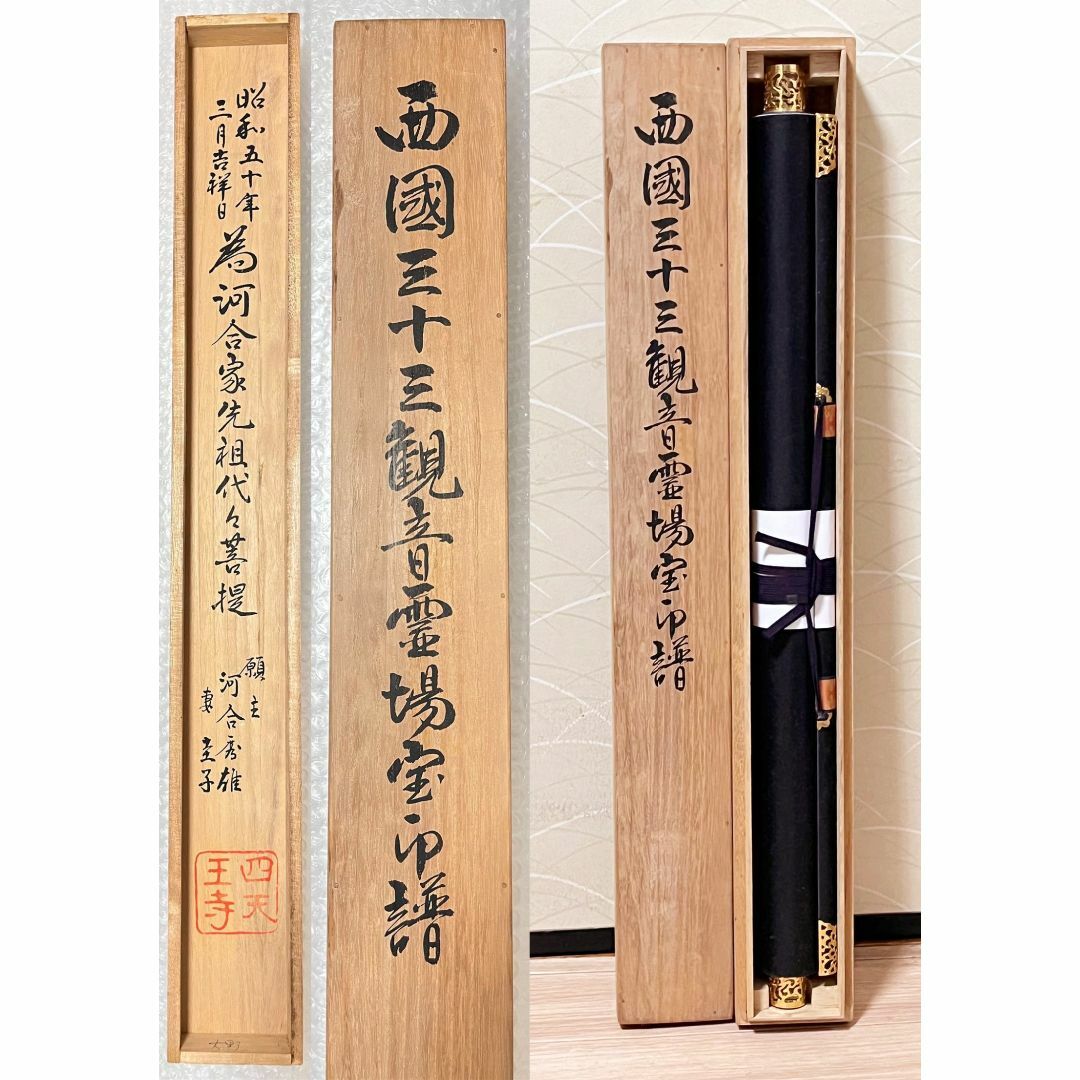 昭和五十年
三月吉祥日
為河合家先祖代々菩提
願主
河合秀雄
妻圭子
四天
王寺
西國三十三観音霊場宝印譜
西國三十三観音霊場宝印譜